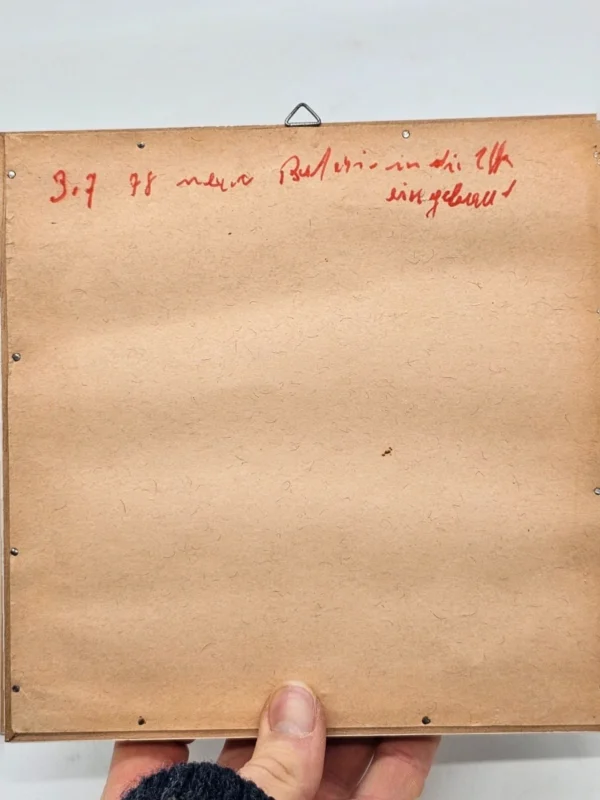 3.7 78 neue Batterie in die Uhr
eingebaut